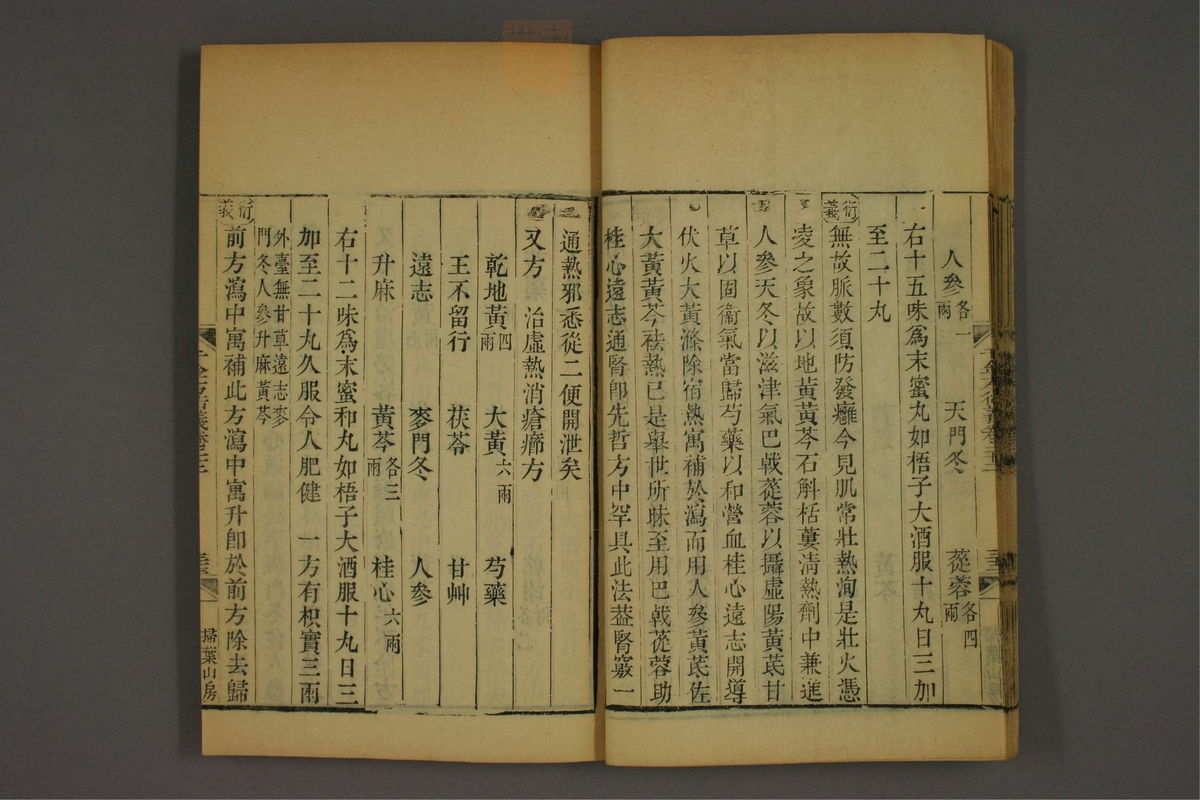 人參各一兩　天門冬　蓯蓉各四兩
右十五味爲末蜜丸如梧子大酒服十丸日三加
至二十丸
衍義
無故脈數須防發癰今見肌常壯熱洵是壯火憑
凌之象故以地黃黃芩石斛栝蔞淸熱劑中兼進
人參天冬以滋津氣巴戟蓯蓉以攝虛陽黃芪甘
草以固衞氣當歸芍藥以和營血桂心遠志開導
伏火大黃滌除宿熱寓補於瀉而用人參黃芪佐
大黃黃芩祛熱已是舉世所昧至用巴戟蓯蓉助
桂心遠志通腎卽先哲方中罕具此法葢腎竅一
通熱邪悉從二便開泄矣
又方　治虛熱消瘡癤方
乾地黃四兩　大黃六兩　芍藥
王不留行　茯苓　甘艸
遠志　麥門冬　人參
升麻　黃芩各三兩　桂心六兩
右十二味爲末蜜和丸如梧子大酒服十丸日三
加至二十丸久服令人肥健　一方有枳實三兩
外臺無甘草遠志麥
門冬人參升麻黃芩
衍義
前方瀉中寓補此方瀉中寓升卽於前方除去歸
掃葉山房